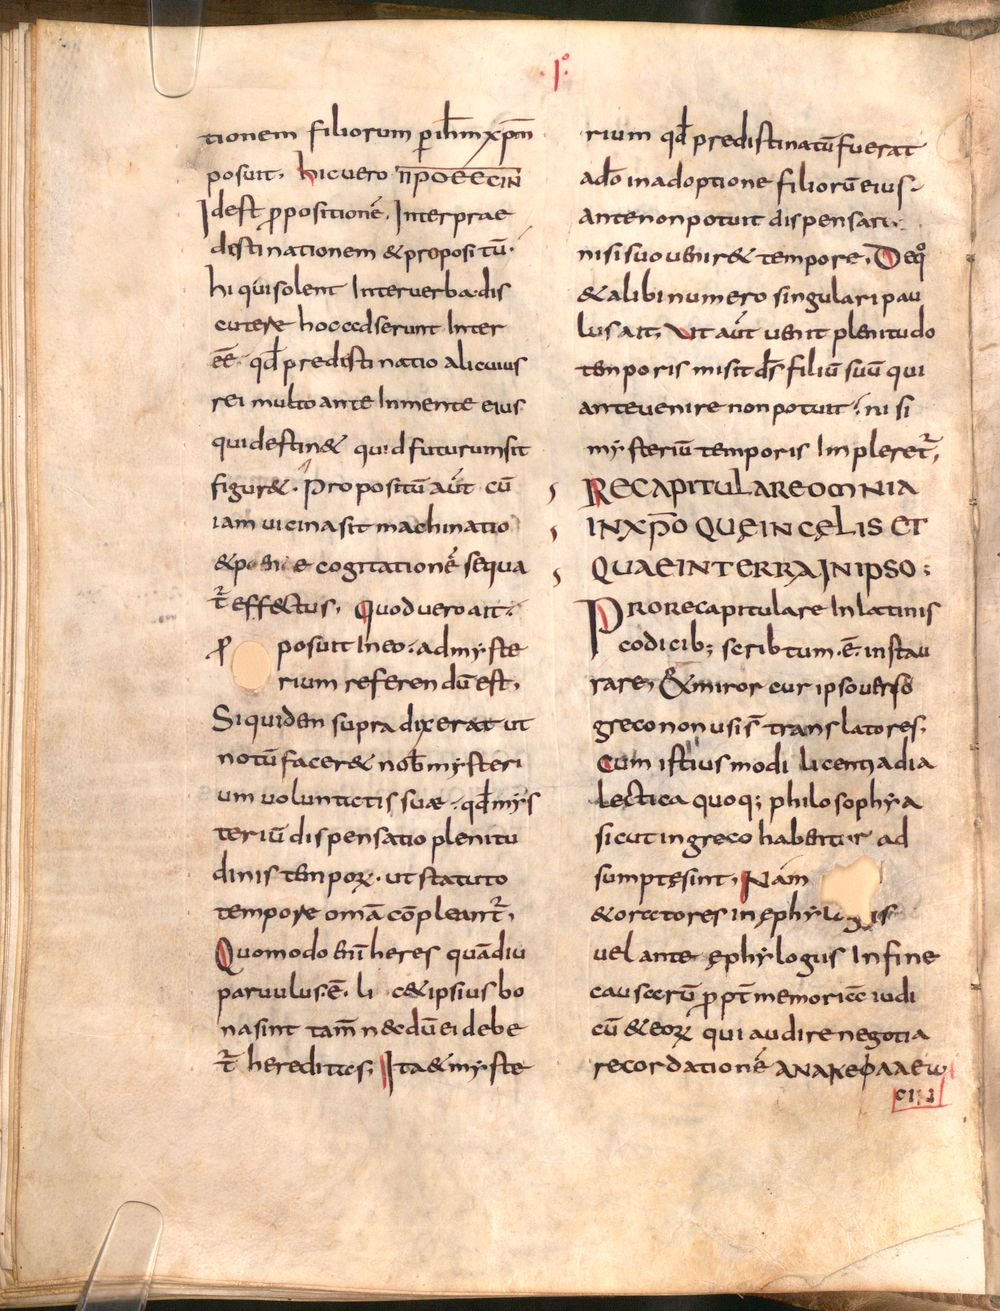 ·I·
tionem filiorum p̱ ih̄m xp̄m
posuit. hic uero ΠΡΟΘΕCΙΝ
Idest p̱positionē. Interprae
destinationem & propositū.
hi qui solent Interuerba dis
cutere hoc adserunt Inter
eē. qđ predestinatio alicuius
rei multo ante Inmente eius
qui destin& quid futurum sit
figur&. Propositū aut̄ cū
iam uicina sit machinatio
& pene cogitationē sequa
t̄ effectus. Quod uero ait.
p̱posuit Ineo. ad myste
rium referendū est.
Siquidem supra dixerat ut
notū facer& nob̄ mysteri
um uoluntatis suae. qđ mys
teriū dispensatio plenitu
dinis temporꝝ. ut statuto
tempore omā cōpleant̄.
Quomodo eni̅ heres quādiu
paruulus ē. lic& ipsius bo
na sint tam̄ n& dū ei debe
t̄ hereditas. Ita & myste
rium qđ predistinatū fuerat
a dō in adoptione filiorū eius.
ante non potuit dispensari.
nisi suo uenir& tempore. Deq̊
& alibi numero singulari pau
lus ait. Ut aūt uenit plenitudo
temporis misit d̄s filiū suū qui
ante uenire non potuit. nisi
mysteriū temporis Impleret̄.
RECAPITULARE OMNIA
IN XP̄O QUĘ IN CĘLIS ET
QUAE IN TERRA IN IPSO;
Pro recapitulare Inlatinis
codicib; scribtum .ē. instau
rare. & miror cur ipso uerbo
greco non usi s̄ translatores.
Cum istiusmodi licentia dia
lectica quoq; philosophya
sicut in greco habentur ad
sumptę sint. Nam
& oratores in ęphylogis
uel ante ęphylogus Infine
causarū p̱pt̄ memoriā iudi
cū & eorꝝ qui audire negotia
recordationē ΑΝΑΚΕΦΑΛΑΕω
CIN